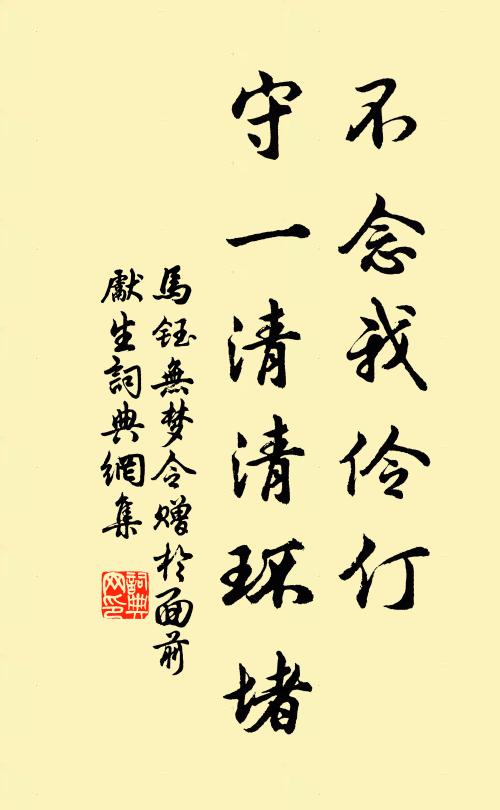 不念我伶仃
守一清清环堵
馬鈺無梦令赠於面前
獻生詞典網集
詞典网印